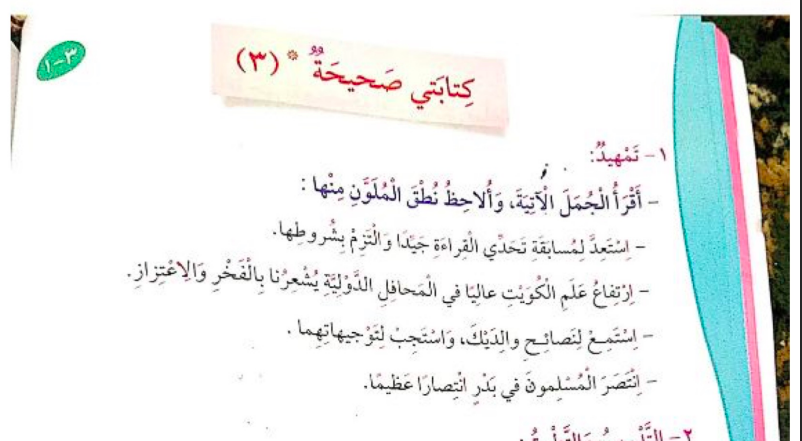 ٣-١
كِتابَتي صَحيحَةٌ * (٣)
١- تَمْهيدٌ:
- أَقْرَأُ الْجُمَلَ الْآتِيَةَ، وَأُلاحِظُ نُطْقَ الْمُلَوَّنِ مِنْها :
- اِسْتَعِدَّ لِمُسابَقَة تَحَدّي الْقِراءَةِ جَيِّدًا وَالْتَزِمْ بِشُروطِها.
- اِرْتِفاعُ عَلَمِ الْكُوَيْتِ عالِيًا في الْمَحافِلِ الدَّوْلِيَّةِ يُشْعِرُنا بِالْفَخْرِ وَالِاعْتِزازِ.
- اِسْتَمِعْ لِنَصائِحِ والِدَيْكَ، وَاسْتَجِبْ لِتَوْجيهاتِهِما .
- اِنْتَصَرَ الْمُسْلِمونَ في بَدْرٍ انْتِصارًا عَظيمًا.
٢-